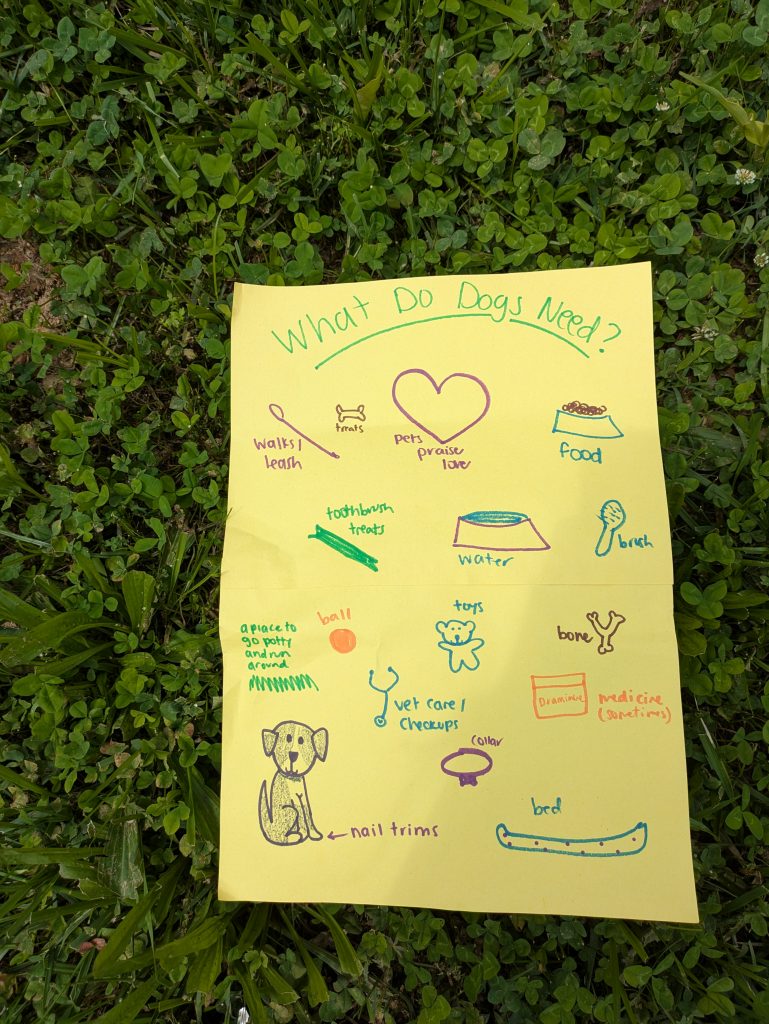 What Do Dogs Need?
treats
walks/
leash
pets
praise
love
food
toothbrush
treats
water
brush
a place to
go potty
and run
around
ball
toys
bone
vet care/
checkups
Dramimine
medicine
(sometimes)
collar
nail trims
bed